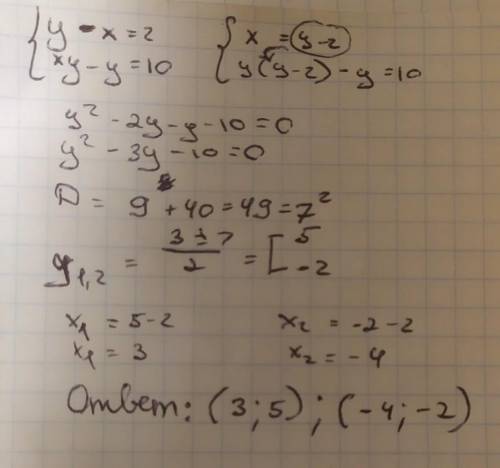 { y - x = 2
xy - y = 10
{ x = y - 2
y(y - 2) - y = 10
y² - 2y - y - 10 = 0
y² - 3y - 10 = 0
D = 9 + 40 = 49 = 7²
y₁,₂ = (3 ± 7)/2 = [ 5
-2
x₁ = 5 - 2
x₁ = 3
x₂ = -2 - 2
x₂ = -4
Ответ: (3; 5); (-4; -2)